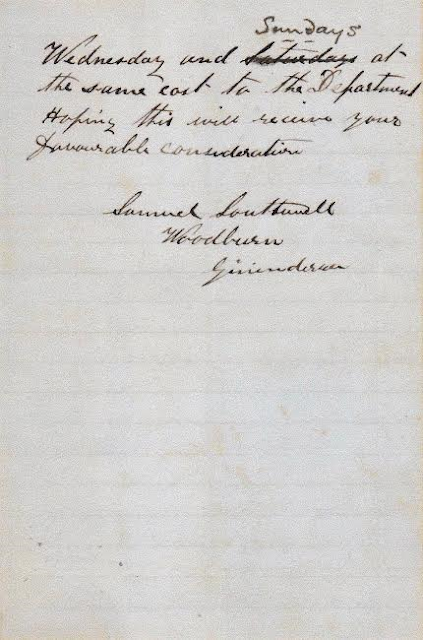 Sundays
Wednesday and Saturdays at
the same cost to the Department
Hoping this will receive your
favourable consideration
Samuel Southwell
Woodburn
Gininderra